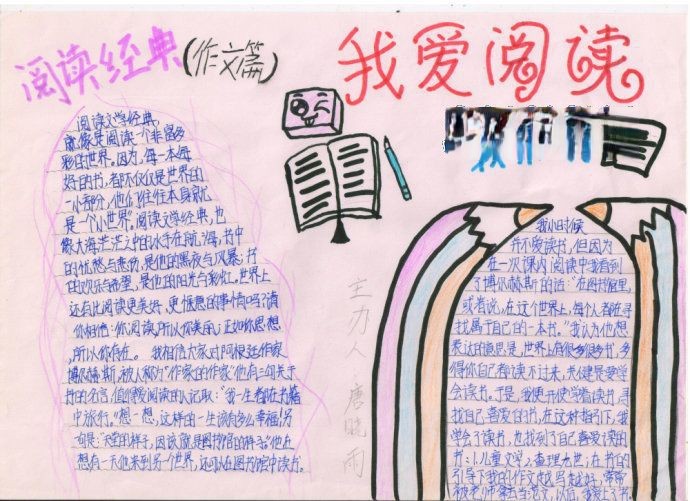 阅读经典(作文篇)
我爱阅读
阅读文学经典,
就像是阅读一个非富多
彩的世界。因为,每一本每
好的书,都不仅仅是世界的
一小部分,他们往往本身就
是一个小世界。阅读文学经典,也
像大海茫茫中的水手在航海,书中
的忧愁与悲伤,是他的黑夜与风暴;书
的欢乐与希望,是他的阳光与彩虹。世界上
还有比阅读更美好,更惬意的事情吗?请
你相信:你阅读,所以你美丽;正如你思想
,所以你存在。 我相信大家对阿根廷作家
博尔赫斯,被人称为"作家的作家"他有三句关于
书的名言,值得爱阅读的人记取:"我一生都在书籍
中旅行。"想一想,这样的一生该有多么幸福!另
一句是:"天堂的样子,因该就是图书馆的样子。"他在
想有一天他来到另一个世界,还可以在图书馆中读书。
主办人 唐晓雨
我小时候
并不爱读书,但因为
在一次课内阅读中我看到
了博尔赫斯的话:"在图书馆里,
或者说,在这个世界上,每个人都在寻
找属于自己的一本书。"我认为他想
表达的意思是,世界上有很多很多书,多
得你自己都读不过来,关健是要学
会读书。于是,我便开使学着读书,寻
找自己喜爱的书,在这种指引下,我
学会了读书,也找到了自己喜爱读的
书:《儿童文学》,查理九世;在书的
引导下我的作文越写越好,常常